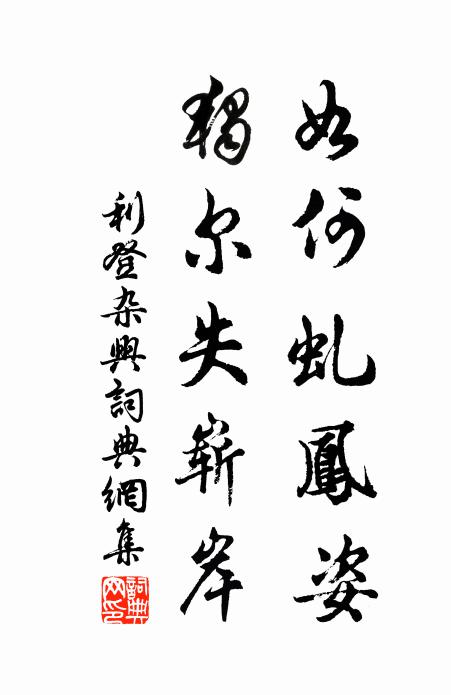 如何虬鳳姿
獨尔失嶄岸
利登杂興詞典網集
詞典网印